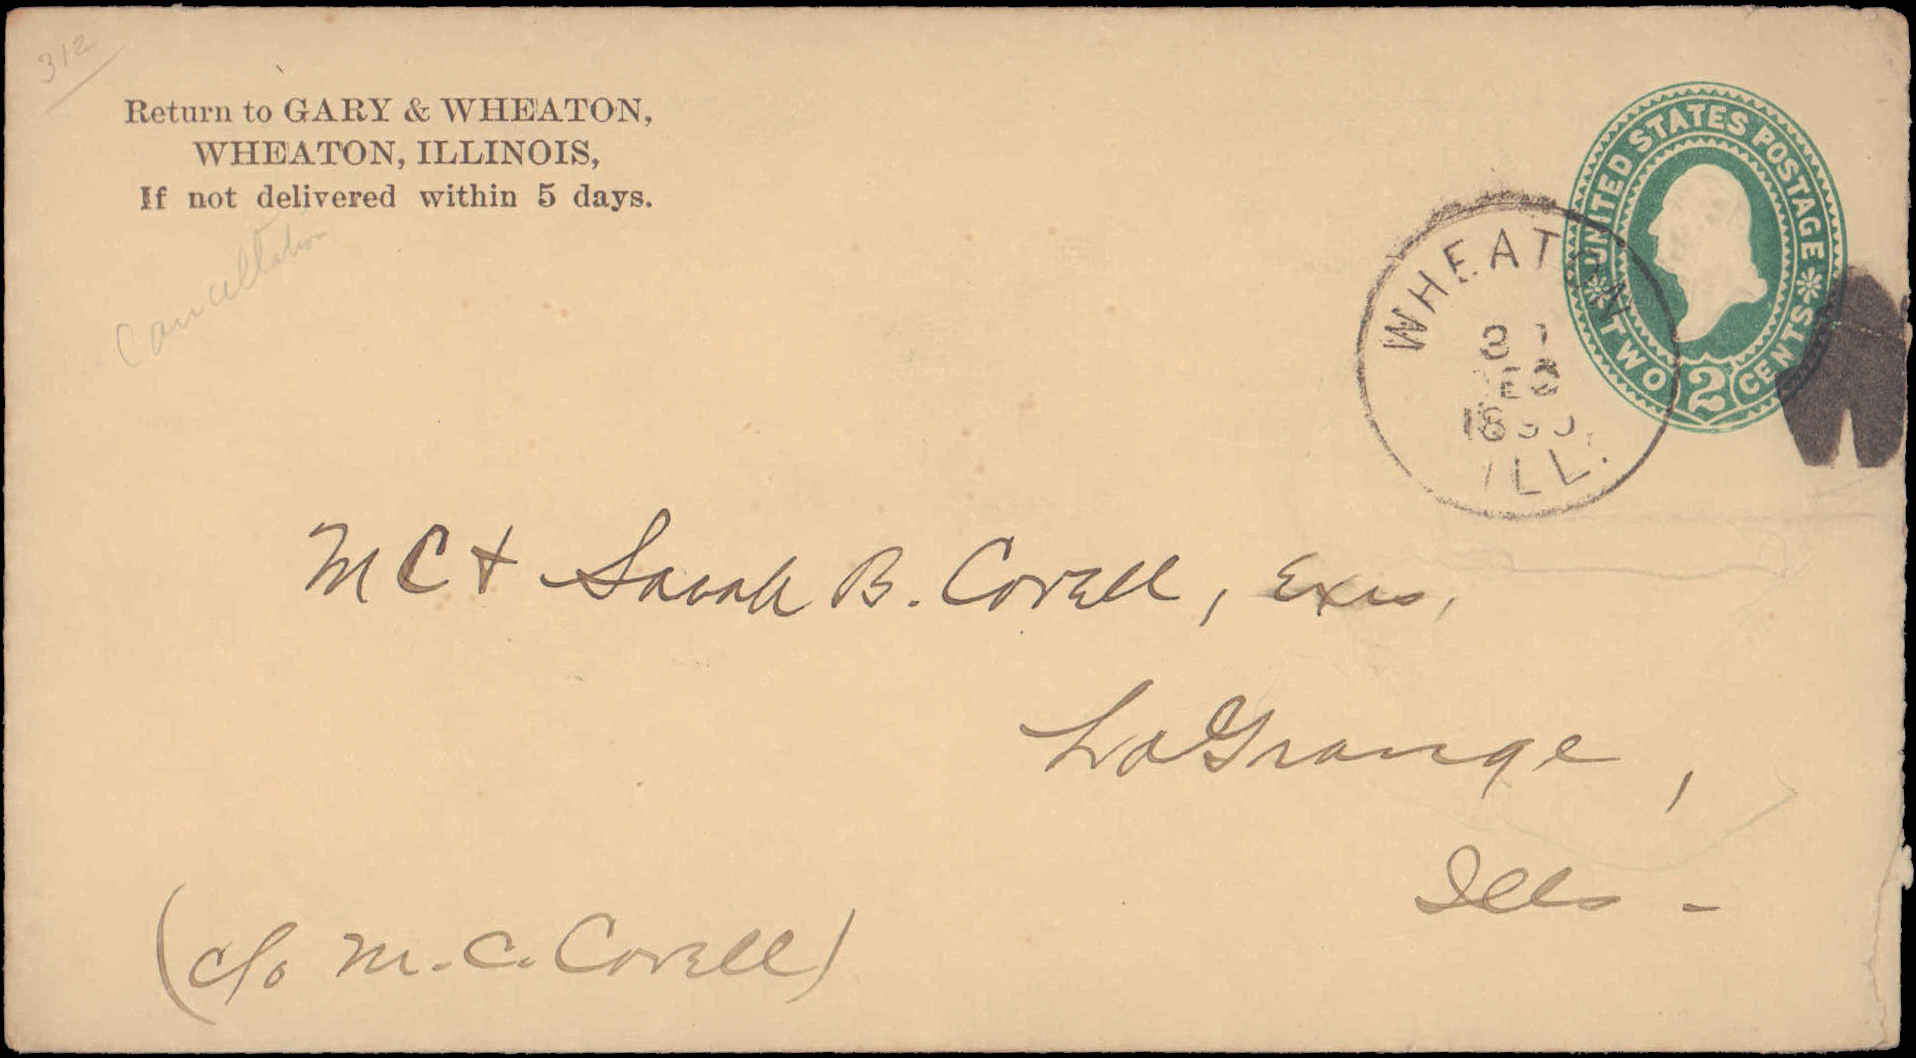 312
Return to GARY & WHEATON,
WHEATON, ILLINOIS,
If not delivered within 5 days.
Cancellation
UNITED STATES POSTAGE
TWO 2 CENTS
WHEATON
31
ILL.
M C & Sarah B. Covell, Exrs,
LaGrange,
Ills -
(c/o M. C. Covell)